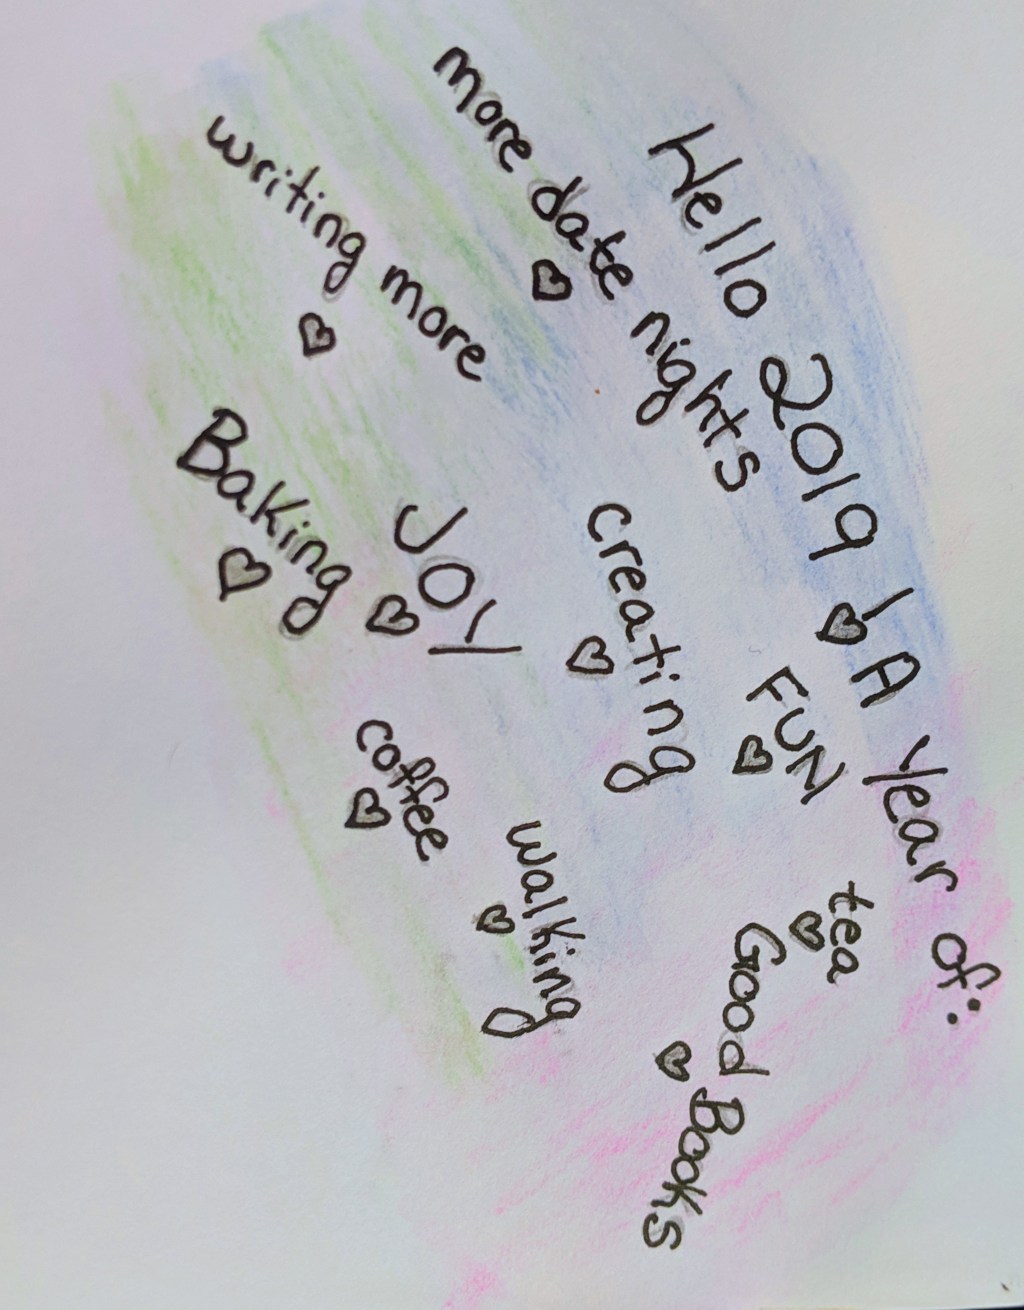 Hello 2019! A year of:
more date nights
FUN
tea
writing more
creating
Good Books
JOY
Baking
walking
coffee